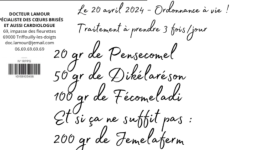 DOCTEUR LAMOUR
SPÉCIALISTE DES CŒURS BRISÉS
ET AUSSI CARDIOLOGUE
69, impasse des fleurettes
69000 Trifouilly-les-doigts
doc.lamour@gmail.com
06.69.69.69.69
Le 20 avril 2024 - Ordonnance à vie !
Traitement à prendre 3 fois/jour
20 gr de Pensecomel
50 gr de Dikélaréson
100 gr de Fécomeladi
Et si ça ne suffit pas :
200 gr de Jemelaferm